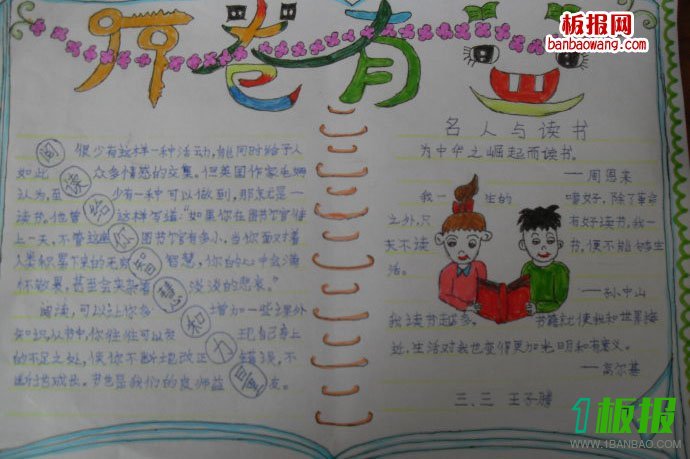 开卷有益
板报网
banbaowang.com
很少有这样一种活动,能同时给予人
如此 众多情感的交集。但英国作家毛姆
认为,至 少有一种可以做到,那就是—
读书,他曾 这样写道:“如果你在图书馆待
上一天,不管这座 图书馆有多小,当你面对着
人类积累下来的无数 智慧,你的心中会满
怀敬畏,甚至会夹杂着 淡淡的悲哀。”
阅读,可以让你多 增加一些课外
知识,从书中,你往往可以发 现自身上
的不足之处,使你不断地改正 错误,不
断地成长。书也是我们的良师益 友。
阅
读
给
你
智
慧
和
力
量
名人与读书
为中华之崛起而读书。
——周恩来
我一 生的 嗜好,除了革命
之外,只 有好读书,我一
天不读 书,便不能够生
活。
——孙中山
我读书越多, 书籍就使我和世界接
近,生活对我也变得更加光明和有意义。
——高尔基
三.三 王子腾
1板报
WWW.1BANBAO.COM